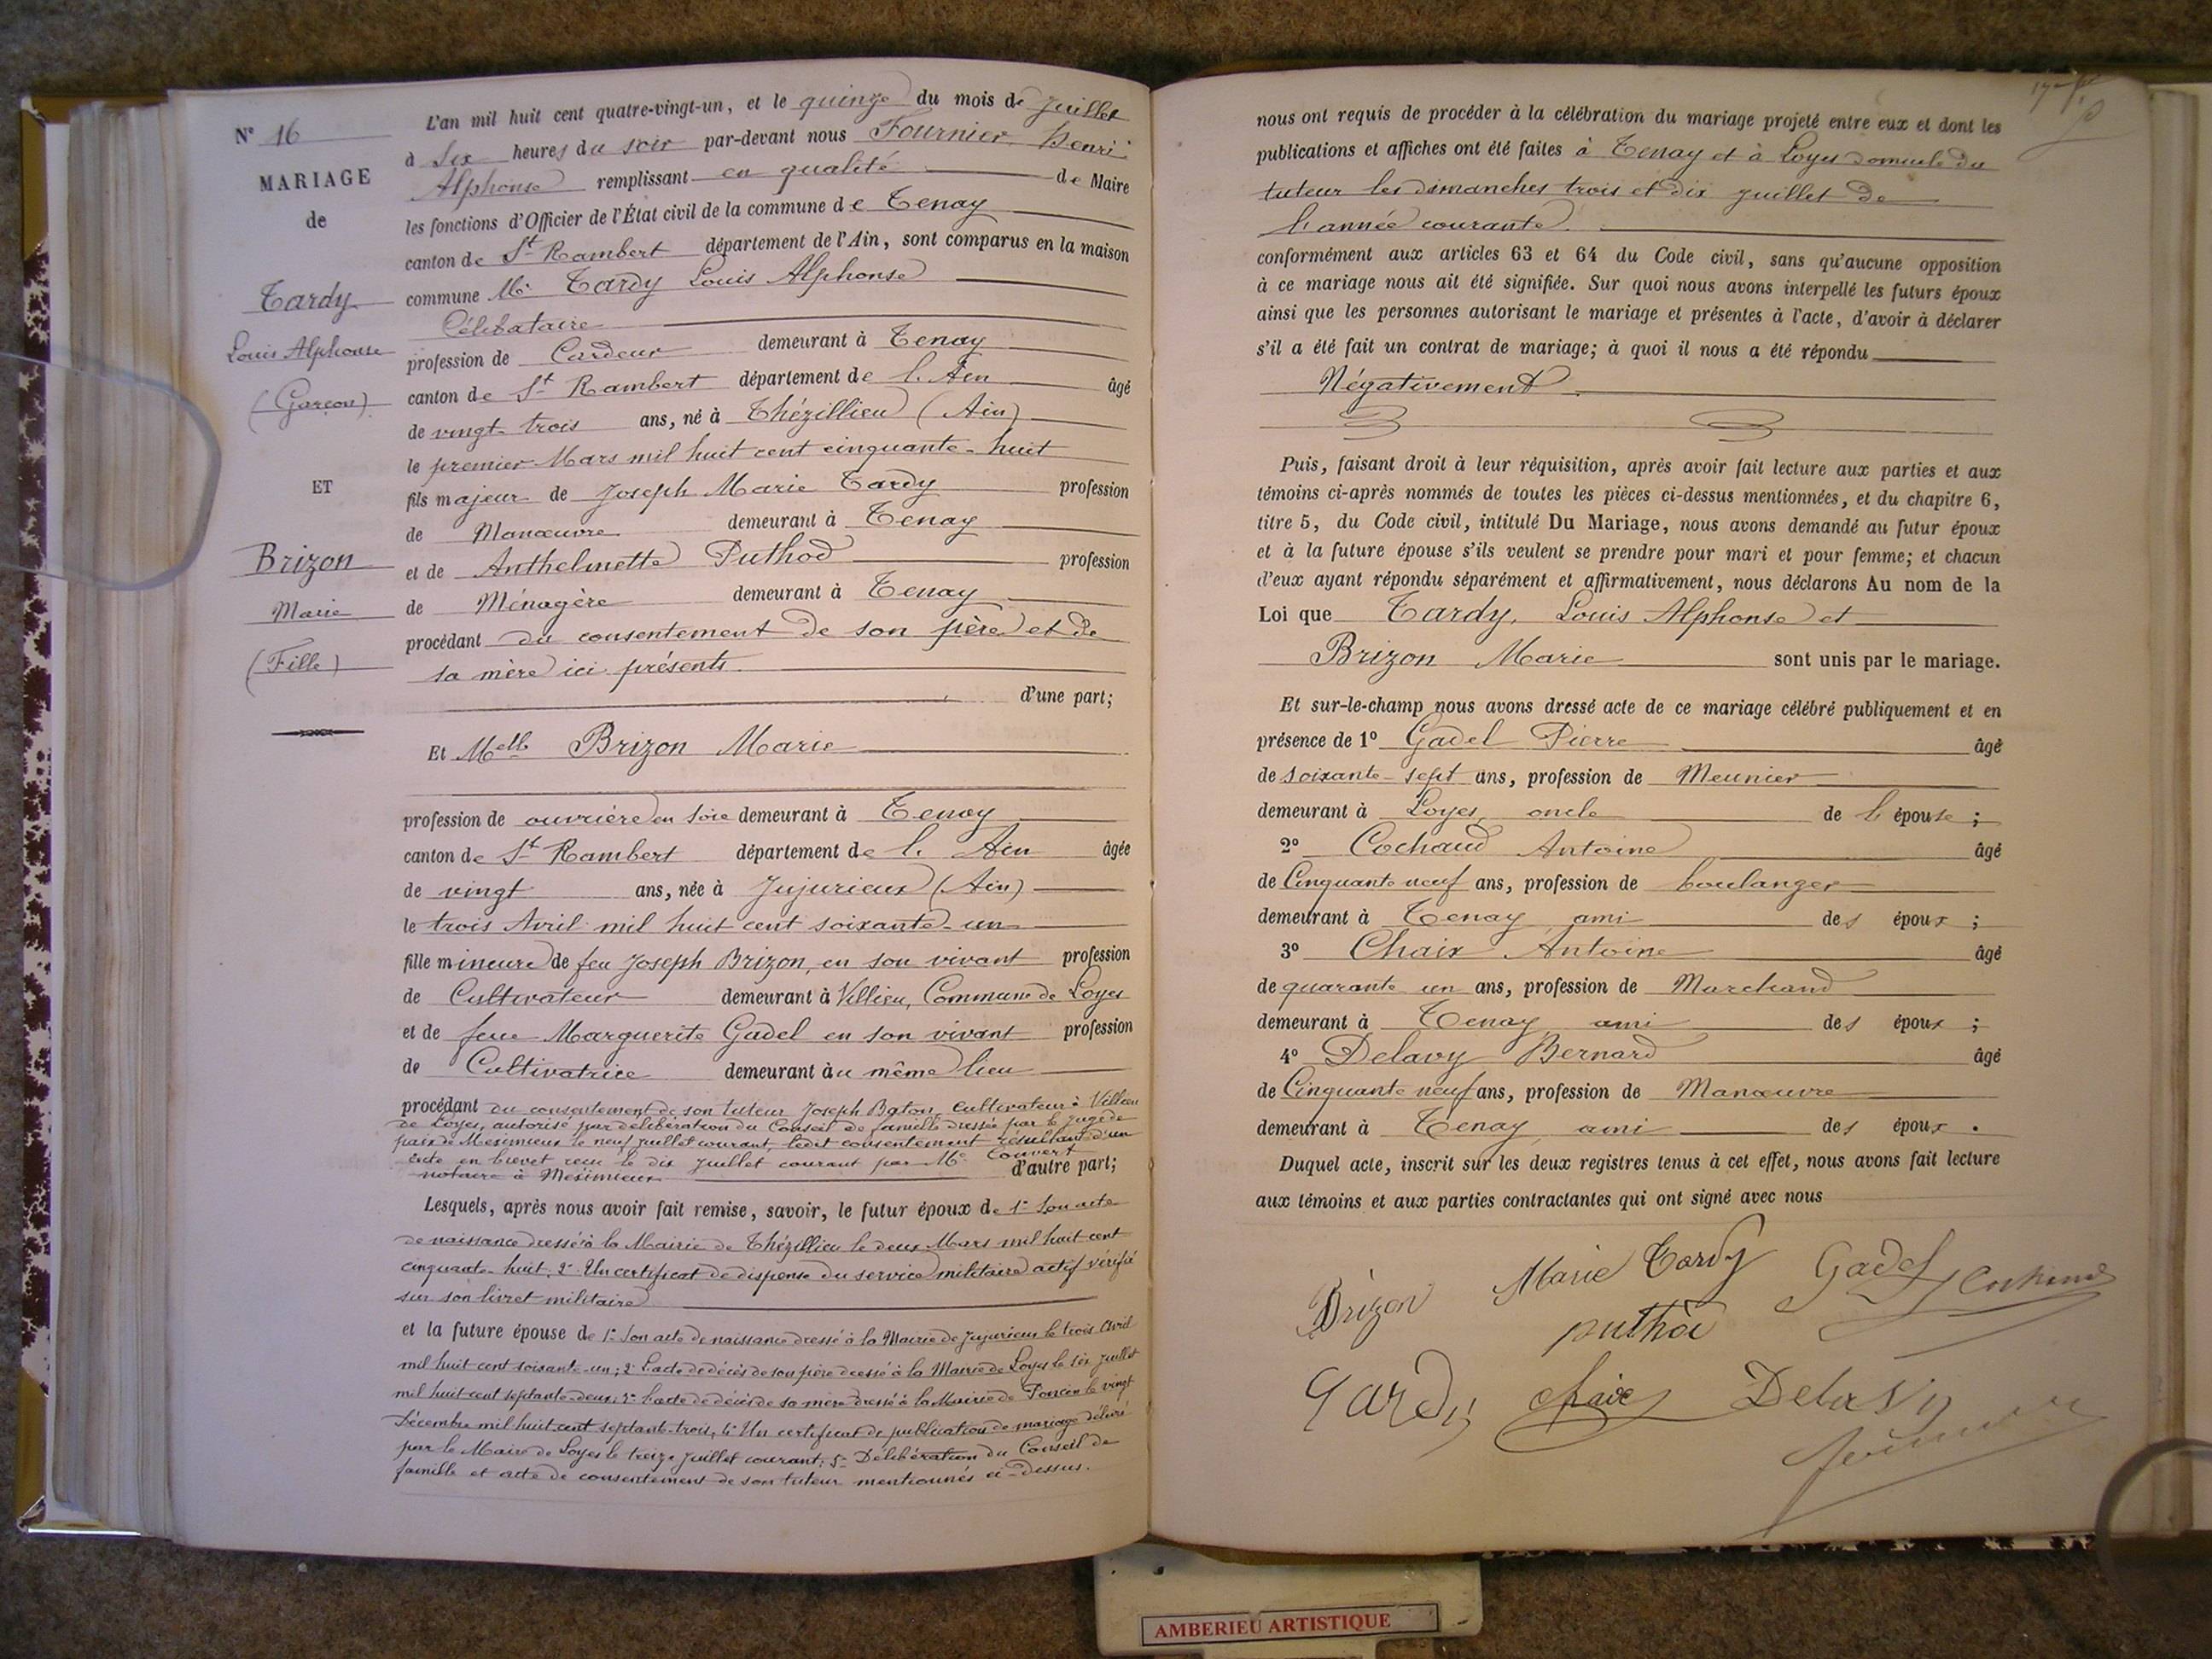 N° 16
MARIAGE
de
Tardy
Louis Alphonse
(Garçon)
ET
Brizon
Marie
(Fille)
L'an mil huit cent quatre-vingt-un, et le quinze du mois de Juillet
à Six heures du soir par-devant nous Fournier Henri
Alphonse remplissant en qualité de Maire
les fonctions d'Officier de l'État civil de la commune de Tenay
canton de St Rambert département de l'Ain, sont comparus en la maison
commune Mr Tardy Louis Alphonse
Célibataire
profession de Cardeur demeurant à Tenay
canton de St Rambert département de l'Ain âgé
de vingt trois ans, né à Thézillieu (Ain)
le premier Mars mil huit cent cinquante-huit
fils majeur de Joseph Marie Tardy profession
de Manœuvre demeurant à Tenay
et de Anthelmette Puthod profession
de Ménagère demeurant à Tenay
procédant du consentement de son père et de
sa mère ici présents
d'une part;
Et Melle Brizon Marie
profession de ouvrière en soie demeurant à Tenay
canton de St Rambert département de l'Ain âgée
de vingt ans, née à Jujurieux (Ain)
le trois Avril mil huit cent soixante-un
fille mineure de feu Joseph Brizon, en son vivant profession
de Cultivateur demeurant à Villieu, Commune de Loyes
et de feue Marguerite Gadel en son vivant profession
de Cultivatrice demeurant au même lieu
procédant du consentement de son tuteur Joseph Baton, cultivateur à Villieu
de Loyes, autorisé par délibération du Conseil de famille dressée par le juge de
paix de Meximieux le neuf juillet courant, ledit consentement résultant d'un
acte en brevet reçu le dix juillet courant par Me Convert
notaire à Meximieux d'autre part;
Lesquels, après nous avoir fait remise, savoir, le futur époux de 1° Son acte
de naissance dressé à la Mairie de Thézillieu le deux Mars mil huit cent
cinquante-huit, 2° Un certificat de dispense du service militaire actif vérifié
sur son livret militaire
et la future épouse de 1° Son acte de naissance dressé à la Mairie de Jujurieux le trois Avril
mil huit cent soixante-un; 2° L'acte de décès de son père dressé à la Mairie de Loyes le six juillet
mil huit cent septante-deux; 3° L'acte de décès de sa mère dressé à la Mairie de Poncin le vingt
Décembre mil huit cent septante-trois, 4° Un certificat de publication de mariage délivré
par le Maire de Loyes le treize juillet courant; 5° Délibération du Conseil de
famille et acte de consentement de son tuteur mentionnés ci-dessus.
nous ont requis de procéder à la célébration du mariage projeté entre eux et dont les
publications et affiches ont été faites à Tenay et à Loyes domicile du
tuteur les dimanches trois et dix juillet de
l'année courante.
conformément aux articles 63 et 64 du Code civil, sans qu'aucune opposition
à ce mariage nous ait été signifiée. Sur quoi nous avons interpellé les futurs époux
ainsi que les personnes autorisant le mariage et présentes à l'acte, d'avoir à déclarer
s'il a été fait un contrat de mariage; à quoi il nous a été répondu
Négativement
Puis, faisant droit à leur réquisition, après avoir fait lecture aux parties et aux
témoins ci-après nommés de toutes les pièces ci-dessus mentionnées, et du chapitre 6,
titre 5, du Code civil, intitulé Du Mariage, nous avons demandé au futur époux
et à la future épouse s'ils veulent se prendre pour mari et pour femme; et chacun
d'eux ayant répondu séparément et affirmativement, nous déclarons Au nom de la
Loi que Tardy, Louis Alphonse et
Brizon Marie sont unis par le mariage.
Et sur-le-champ nous avons dressé acte de ce mariage célébré publiquement et en
présence de 1° Gadel Pierre âgé
de soixante-sept ans, profession de Meunier
demeurant à Loyes, oncle de l'épouse;
2° Cochaud Antoine âgé
de Cinquante neuf ans, profession de boulanger
demeurant à Tenay ami des époux;
3° Chaix Antoine âgé
de quarante un ans, profession de Marchand
demeurant à Tenay ami des époux;
4° Delavy Bernard âgé
de Cinquante neuf ans, profession de Manœuvre
demeurant à Tenay ami des époux.
Duquel acte, inscrit sur les deux registres tenus à cet effet, nous avons fait lecture
aux témoins et aux parties contractantes qui ont signé avec nous
Brizon Marie Tardy Gadel Cochaud
puthod
Tardy Chaix Delavy
Fournier
AMBERIEU ARTISTIQUE